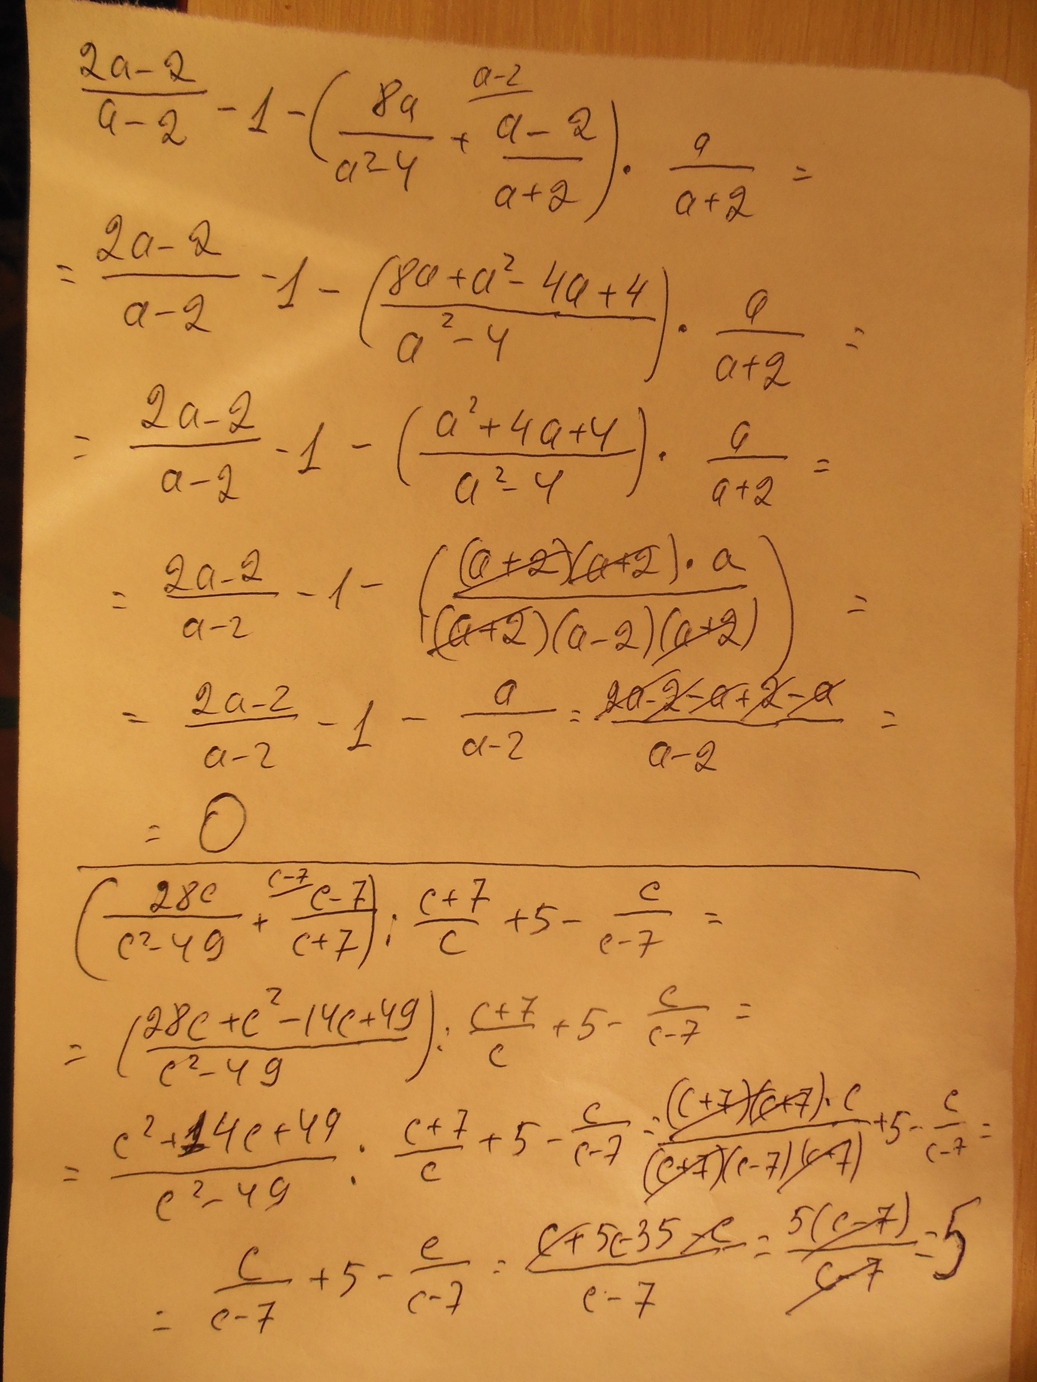 (2a-2)/(a-2) - 1 - (8a/(a²-4) + ^(a-2) (a-2)/(a+2)) · a/(a+2) =
= (2a-2)/(a-2) - 1 - ((8a+a²-4a+4)/(a²-4)) · a/(a+2) =
= (2a-2)/(a-2) - 1 - ((a²+4a+4)/(a²-4)) · a/(a+2) =
= (2a-2)/(a-2) - 1 - ((a+2)(a+2)·a/((a+2)(a-2)(a+2))) =
= (2a-2)/(a-2) - 1 - a/(a-2) = (2a-2-a+2-a)/(a-2) =
= 0
(28c/(c²-49) + ^(c-7) (c-7)/(c+7)) : (c+7)/c + 5 - c/(c-7) =
= ((28c+c²-14c+49)/(c²-49)) : (c+7)/c + 5 - c/(c-7) =
= (c²+14c+49)/(c²-49) : (c+7)/c + 5 - c/(c-7) = (c+7)(c+7)·c/((c+7)(c-7)(c+7)) + 5 - c/(c-7) =
= c/(c-7) + 5 - c/(c-7) = (c+5c-35-c)/(c-7) = 5(c-7)/(c-7) = 5